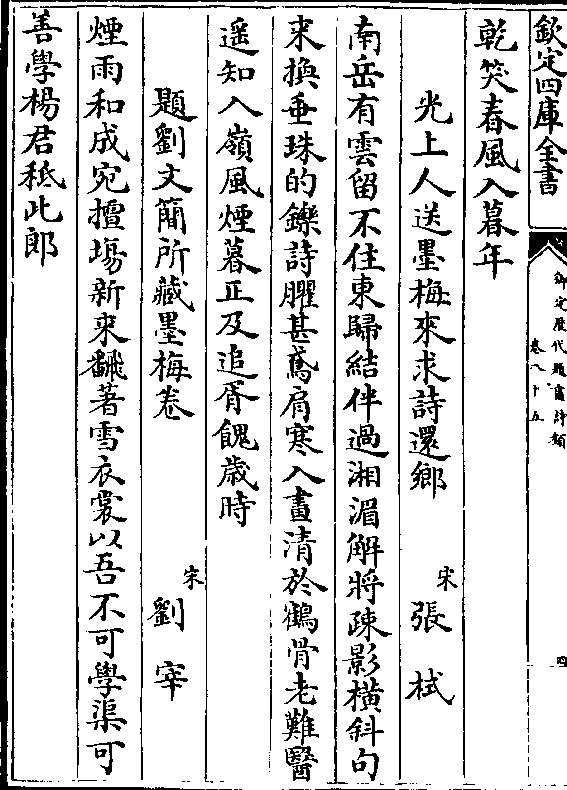 欽定四庫全書
御定歷代題畫詩類
卷八十五
四
乾笑春風入暮年
光上人送墨梅來求詩還鄉　宋　張栻
南岳有雲留不住東歸結伴過湘湄解將疎影橫斜句
来換垂珠的鑠詩臞甚鳶肩寒入畫清於鶴骨老難醫
遥知入嶺風煙暮正及追胥餽歲時
題劉文簡所藏墨梅卷　宋　劉宰
煙雨和成宛擅塲新来飜著雪衣裳以吾不可學渠可
善學楊君秪此郎